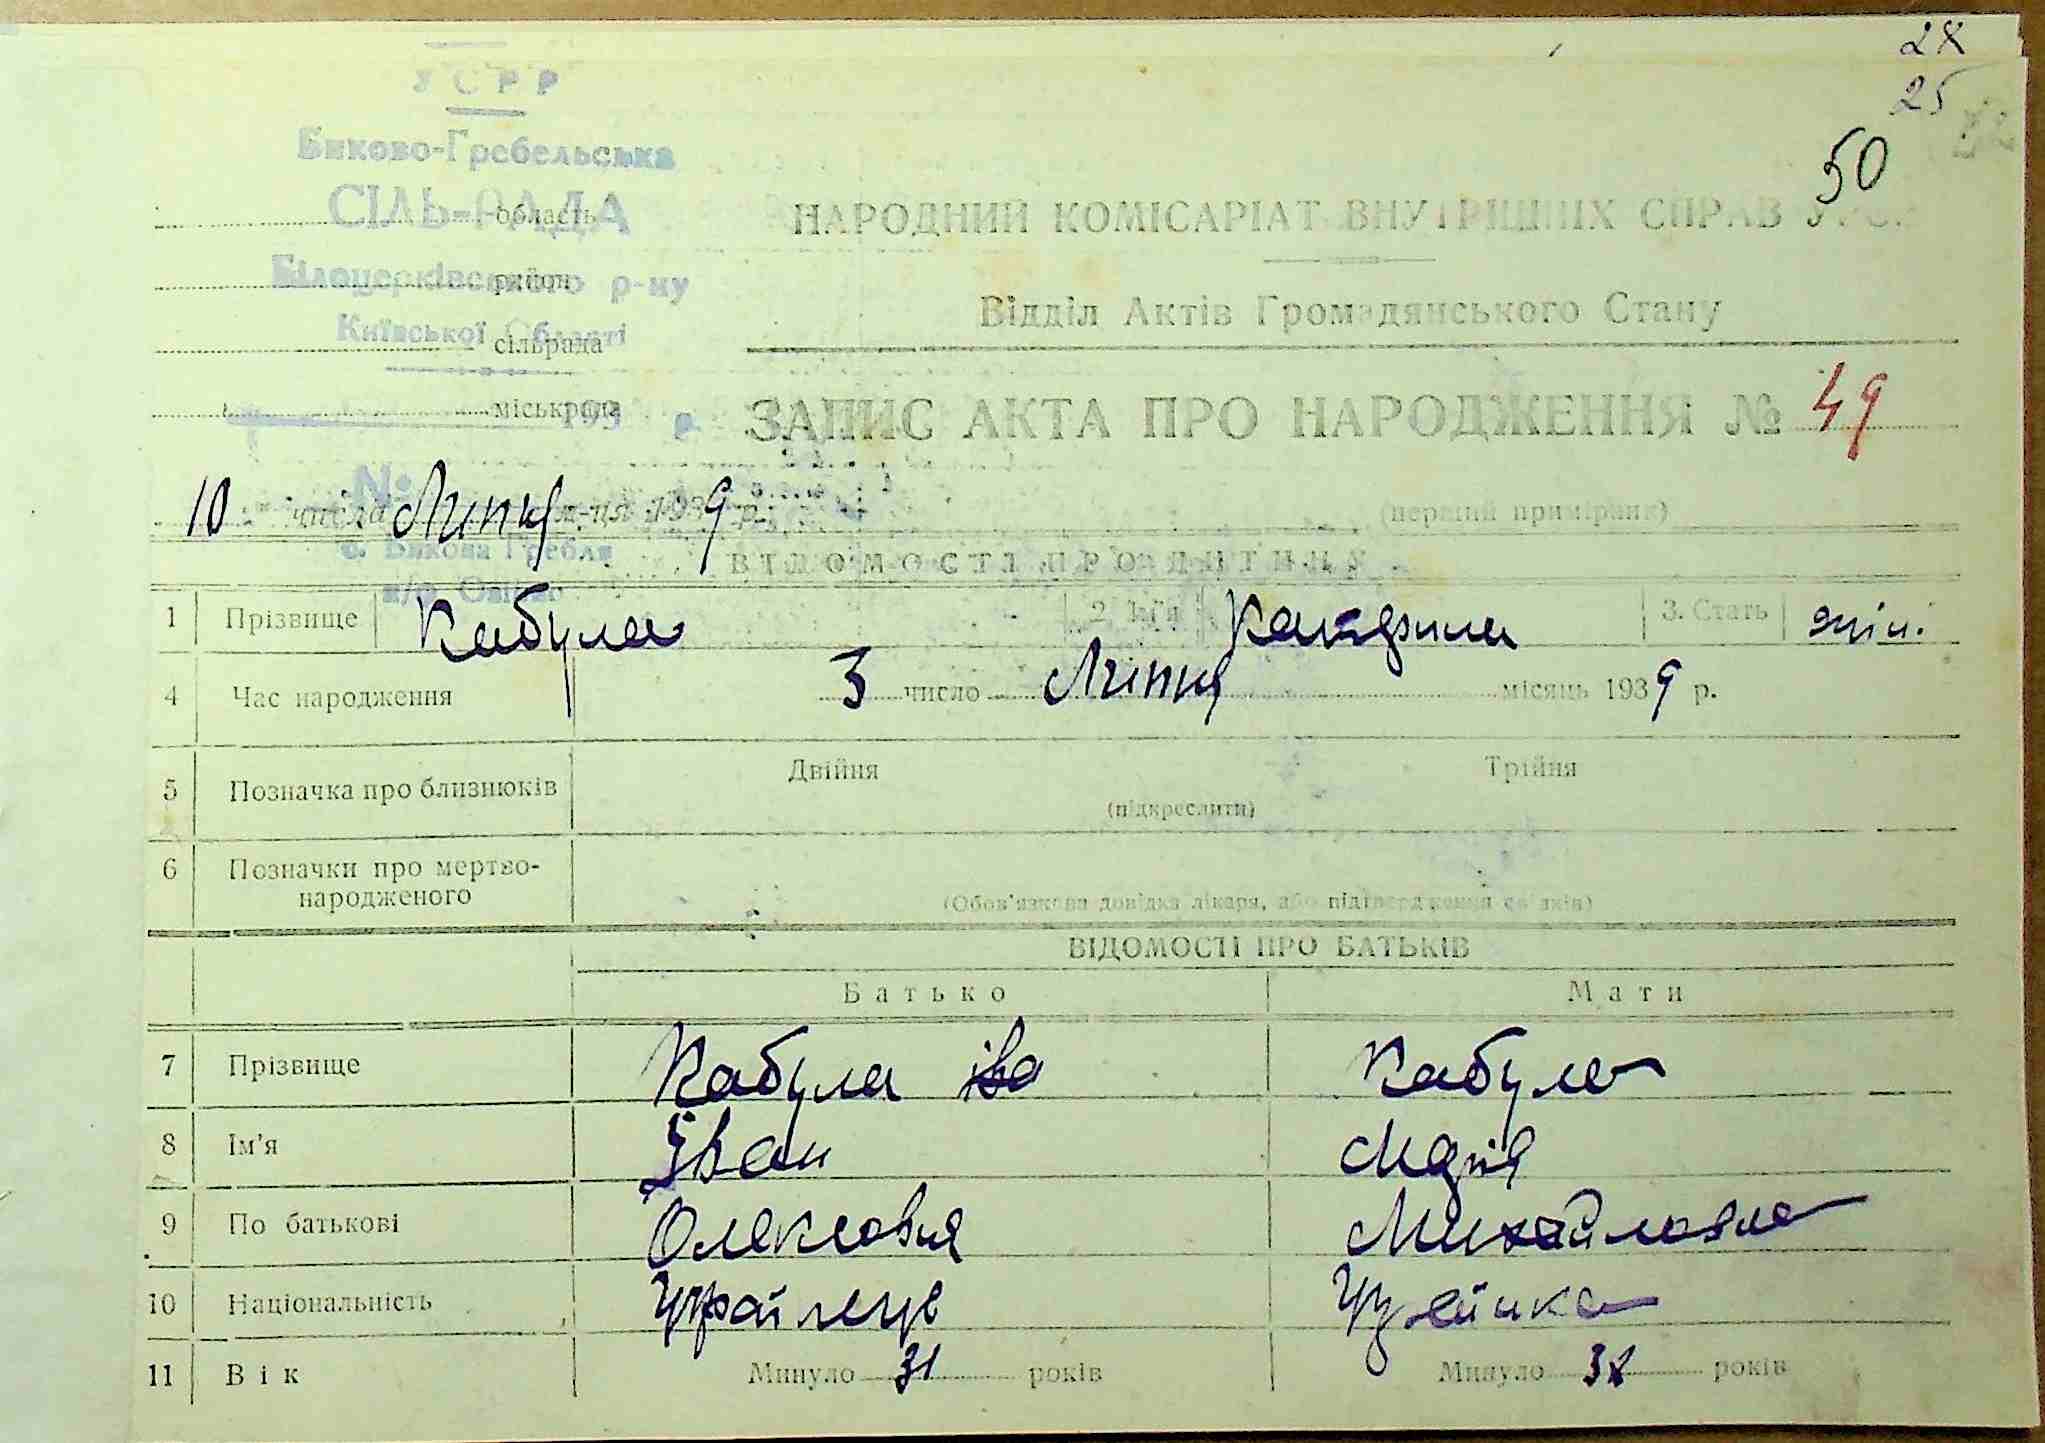 28
25
50
УСРР
Биково-Гребельська
СІЛЬ-РАДА
область
НАРОДНИЙ КОМІСАРІАТ ВНУТРІШНІХ СПРАВ УРСР
Білоцерківського р-ну
район
Відділ Актів Громадянського Стану
Київської Області
сільрада
міськрада
193 р.
ЗАПИС АКТА ПРО НАРОДЖЕННЯ № 49
№
10 числа Липня м-ця 1939 р.
(перший примірник)
с. Бикова Гребля
ВІДОМОСТІ ПРО ДИТИНУ
1 Прізвище Кабула 2. Ім'я Катерина 3. Стать жін.
4 Час народження 3 число Липня місяць 1939 р.
5 Позначка про близнюків Двійня Трійня
(підкреслити)
6 Позначки про мертво-
народженого
(Обов'язкова довідка лікаря, або підтвердження свідків)
ВІДОМОСТІ ПРО БАТЬКІВ
Батько Мати
7 Прізвище Кабула Іва Кабула
8 Ім'я Іван Марія
9 По батькові Михайловна
10 Національність
11 Вік Минуло 31 років Минуло років